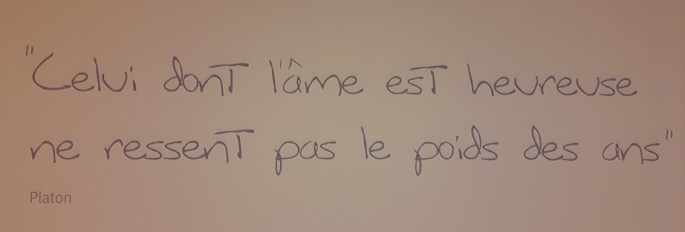 "Celui dont l'âme est heureuse
ne ressent pas le poids des ans"
Platon